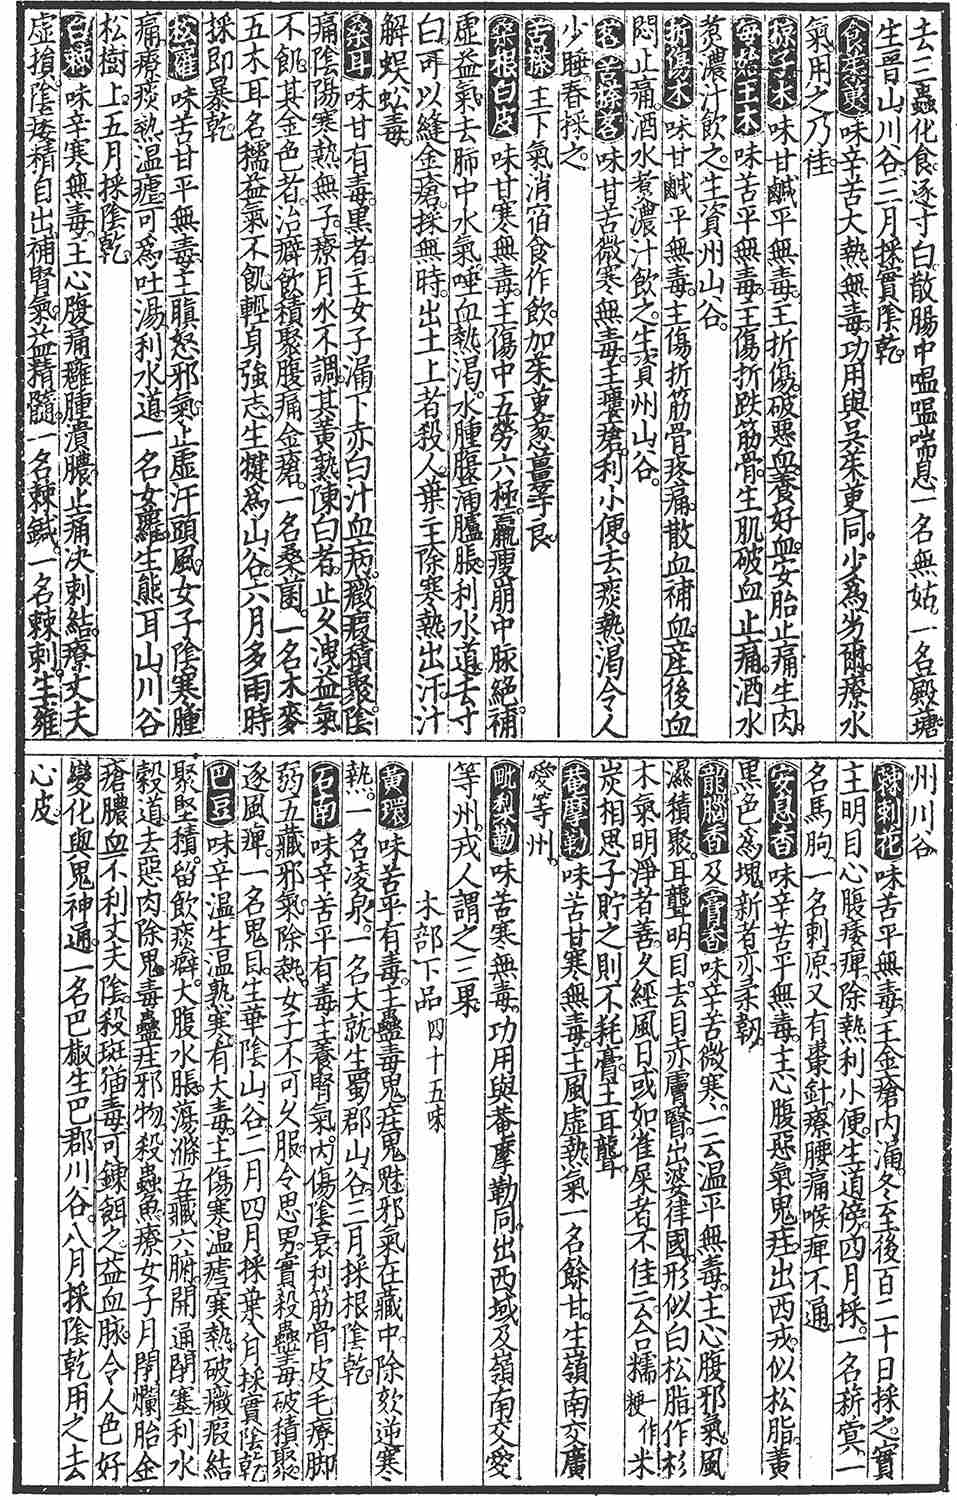 去三蟲化食逐寸白散腸中嗢嗢喘息一名無姑一名𦽄䕋
生晉山川谷三月採實陰乾
食茱萸味辛苦大熱無毒功用與吳茱萸同少為劣爾療水
氣用之乃佳
椋子木味甘鹹平無毒主折傷破惡血養好血安胎止痛生肉
每始王木味苦平無毒主傷折跌筋骨生肌破血止痛酒水
煑濃汁飲之生資州山谷
折傷木味甘鹹平無毒主傷折筋骨疼痛散血補血產後血
悶止痛酒水煑濃汁飲之生資州山谷
茗苦㯥茗味甘苦微寒無毒主瘻瘡利小便去痰熱渴令人
少睡春採之
苦㯥主下氣消宿食作飲加茱萸葱薑等良
桑根白皮味甘寒無毒主傷中五勞六極羸瘦崩中脉絕補
虛益氣去肺中水氣唾血熱渴水腫腹滿臚脹利水道去寸
白可以縫金瘡採無時出土上者殺人葉主除寒熱出汗汁
解蜈蚣毒
桑耳味甘有毒黑者主女子漏下赤白汁血病癥瘕積聚陰
痛陰陽寒熱無子療月水不調其黃熟陳白者止久洩益氣
不飢其金色者治癖飲積聚腹痛金瘡一名桑菌一名木麥
五木耳名檽益氣不飢輕身強志生犍為山谷六月多雨時
採即暴乾
松蘿味苦甘平無毒主瞋怒邪氣止虛汗頭風女子陰寒腫
痛療痰熱溫瘧可為吐湯利水道一名女蘿生熊耳山川谷
松樹上五月採陰乾
白棘味辛寒無毒主心腹痛癰腫潰膿止痛决刺結療丈夫
虛損陰痿精自出補腎氣益精髓一名棘鍼一名棘刺生雍
州川谷
棘刺花味苦平無毒主金瘡內漏冬至後百二十日採之實
主明目心腹痿痺除熱利小便生道傍四月採一名菥蓂一
名馬朐一名刺原又有棗針療腰痛喉痺不通
安息香味辛苦平無毒主心腹惡氣鬼疰出西戎似松脂黃
黑色為塊新者亦柔韌
龍腦香及膏香味辛苦微寒一云溫平無毒主心腹邪氣風
濕積聚耳聾明目去目赤膚翳出婆律國形似白松脂作杉
木氣明淨者善久經風日或如雀屎者不佳云合糯一作粳米
炭相思子貯之則不耗膏主耳聾
菴摩勒味苦甘寒無毒主風虛熱氣一名餘甘生嶺南交廣
愛等州
毗梨勒味苦寒無毒功用與菴摩勒同出西域及嶺南交愛
等州戎人謂之三果
木部下品四十五味
黃環味苦平有毒主蠱毒鬼疰鬼魅邪氣在藏中除欬逆寒
熱一名凌泉一名大就生蜀郡山谷三月採根陰乾
石南味辛苦平有毒主養腎氣內傷陰衰利筋骨皮毛療腳
弱五藏邪氣除熱女子不可久服令思男實殺蠱毒破積聚
逐風痺一名鬼目生華陰山谷二月四月採葉八月採實陰乾
巴豆味辛溫生溫熟寒有大毒主傷寒溫瘧寒熱破癥瘕結
聚堅積留飲痰癖大腹水脹蕩滌五藏六腑開通閉塞利水
穀道去惡肉除鬼毒蠱疰邪物殺蟲魚療女子月閉爛胎金
瘡膿血不利丈夫陰殺斑猫毒可鍊餌之益血脉令人色好
變化與鬼神通一名巴椒生巴郡川谷八月採陰乾用之去
心皮